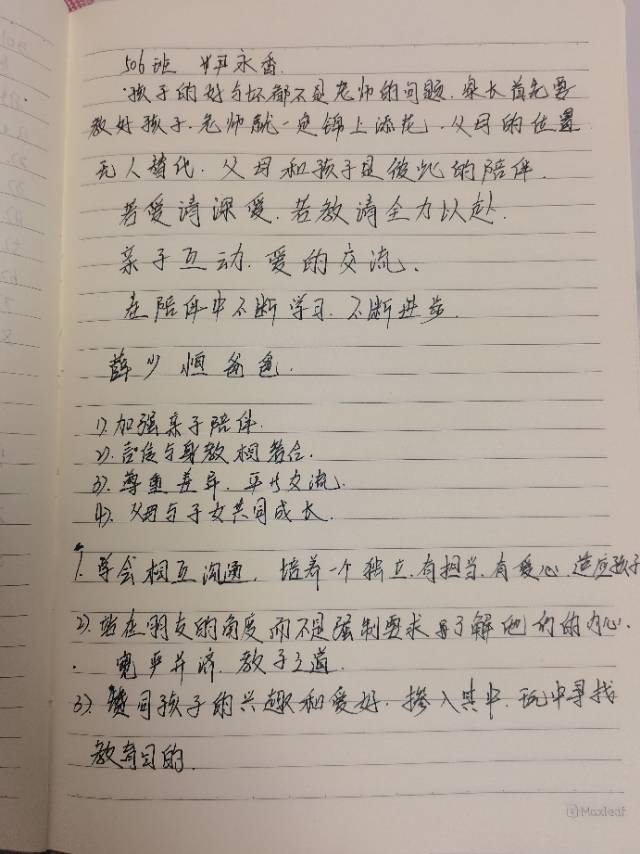 506班 永香.
孩子的好与坏都不是老师的问题.家长首先要
教好孩子.老师就一定锦上添花.父母的位置
无人替代.父母和孩子是彼此的陪伴.
若爱请深爱.若教请全力以赴.
亲子互动.爱的交流.
在陪伴中不断学习.不断进步.
薛少恒爸爸.
1).加强亲子陪伴.
2).言传与身教相结合.
3).尊重差异.平等交流.
4).父母与子女共同成长.
1.学会相互沟通,培养一个独立.有担当.有爱心.适应孩子
2).站在朋友的角度而不是强制要求 了解他们的内心.
宽严并济.教子之道.
3).赞同孩子的兴趣和爱好.掺入其中.玩中寻找
教育目的.
Maxleaf